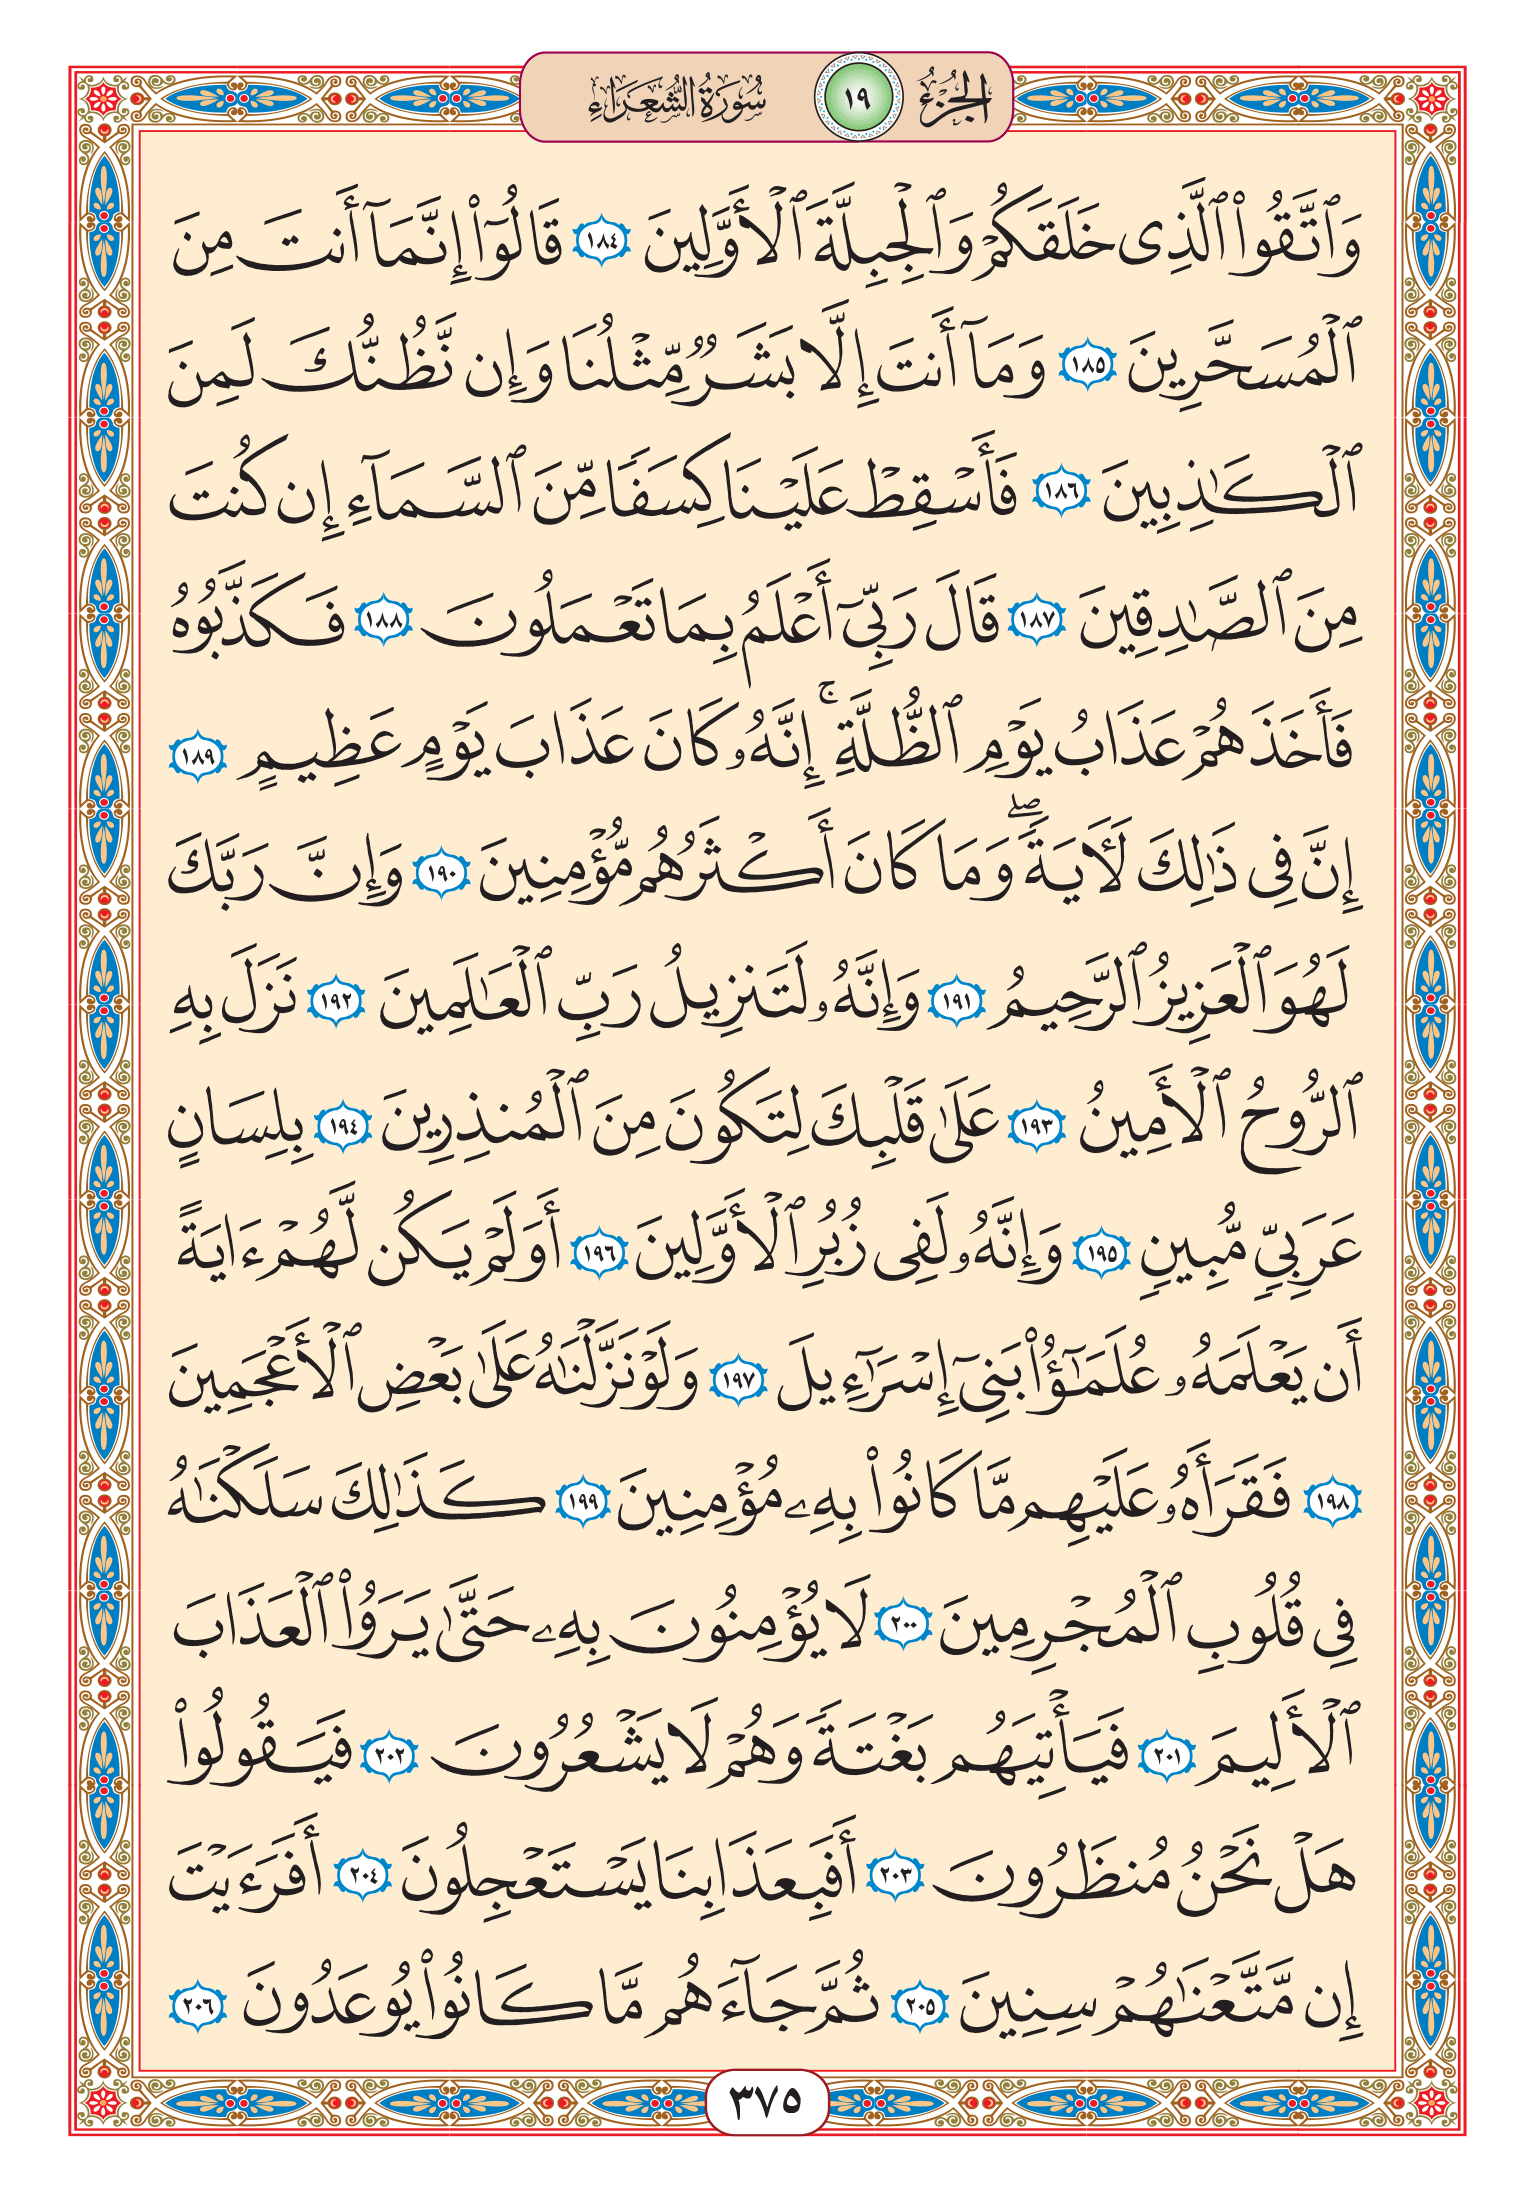 الجزء ١٩ سورة الشعراء
وَٱتَّقُوا۟ ٱلَّذِى خَلَقَكُمْ وَٱلْجِبِلَّةَ ٱلْأَوَّلِينَ ١٨٤ قَالُوٓا۟ إِنَّمَآ أَنتَ مِنَ
ٱلْمُسَحَّرِينَ ١٨٥ وَمَآ أَنتَ إِلَّا بَشَرٌ مِّثْلُنَا وَإِن نَّظُنُّكَ لَمِنَ
ٱلْكَـٰذِبِينَ ١٨٦ فَأَسْقِطْ عَلَيْنَا كِسَفًا مِّنَ ٱلسَّمَآءِ إِن كُنتَ
مِنَ ٱلصَّـٰدِقِينَ ١٨٧ قَالَ رَبِّىٓ أَعْلَمُ بِمَا تَعْمَلُونَ ١٨٨ فَكَذَّبُوهُ
فَأَخَذَهُمْ عَذَابُ يَوْمِ ٱلظُّلَّةِ ۚ إِنَّهُۥ كَانَ عَذَابَ يَوْمٍ عَظِيمٍ ١٨٩
إِنَّ فِى ذَٰلِكَ لَـَٔايَةً ۖ وَمَا كَانَ أَكْثَرُهُم مُّؤْمِنِينَ ١٩٠ وَإِنَّ رَبَّكَ
لَهُوَ ٱلْعَزِيزُ ٱلرَّحِيمُ ١٩١ وَإِنَّهُۥ لَتَنزِيلُ رَبِّ ٱلْعَـٰلَمِينَ ١٩٢ نَزَلَ بِهِ
ٱلرُّوحُ ٱلْأَمِينُ ١٩٣ عَلَىٰ قَلْبِكَ لِتَكُونَ مِنَ ٱلْمُنذِرِينَ ١٩٤ بِلِسَانٍ
عَرَبِىٍّ مُّبِينٍ ١٩٥ وَإِنَّهُۥ لَفِى زُبُرِ ٱلْأَوَّلِينَ ١٩٦ أَوَلَمْ يَكُن لَّهُمْ ءَايَةً
أَن يَعْلَمَهُۥ عُلَمَـٰٓؤُا۟ بَنِىٓ إِسْرَٰٓءِيلَ ١٩٧ وَلَوْ نَزَّلْنَـٰهُ عَلَىٰ بَعْضِ ٱلْأَعْجَمِينَ
١٩٨ فَقَرَأَهُۥ عَلَيْهِم مَّا كَانُوا۟ بِهِۦ مُؤْمِنِينَ ١٩٩ كَذَٰلِكَ سَلَكْنَـٰهُ
فِى قُلُوبِ ٱلْمُجْرِمِينَ ٢٠٠ لَا يُؤْمِنُونَ بِهِۦ حَتَّىٰ يَرَوُا۟ ٱلْعَذَابَ
ٱلْأَلِيمَ ٢٠١ فَيَأْتِيَهُم بَغْتَةً وَهُمْ لَا يَشْعُرُونَ ٢٠٢ فَيَقُولُوا۟
هَلْ نَحْنُ مُنظَرُونَ ٢٠٣ أَفَبِعَذَابِنَا يَسْتَعْجِلُونَ ٢٠٤ أَفَرَءَيْتَ
إِن مَّتَّعْنَـٰهُمْ سِنِينَ ٢٠٥ ثُمَّ جَآءَهُم مَّا كَانُوا۟ يُوعَدُونَ ٢٠٦
٣٧٥